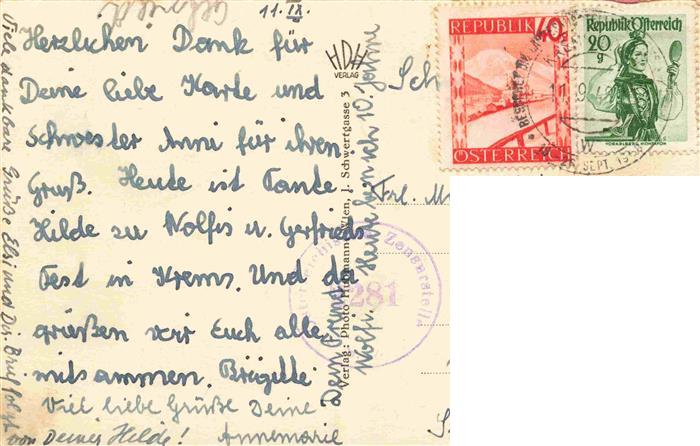 11. IX.
Herzlichen Dank für
Deine liebe Karte und
Schwester Anni für ihren
Gruß. Heute ist Tante
Hilde zu Wolfis u. Gerfrieds
Fest in Krems. Und da
grüßen wir Euch alle
mitsammen. Brigitte
Viel liebe Grüße Deine
Annemarie
von Deiner Hilde!
Viele dankbare Grüße Elsi und Dir. Brief folgt
Dein Freund
Wolfi. Heute bin ich 10 Jahre
HDH
VERLAG
Verlag: Photo Wien, J. Schwertgasse 3
Zensurstelle
281
Frl.
REPUBLIK
40
ÖSTERREICH
Republik Österreich
20
g
VORARLBERG MONTAFON
SEPT.